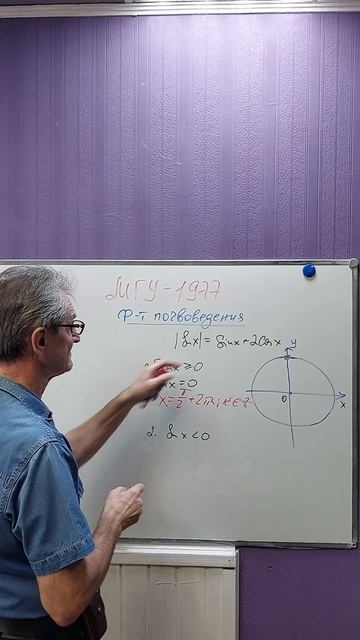 МГУ-1977
Ф-т почвоведения
|Sin x| = Sin x + 2Cos x
Sin x ≥ 0
x = 0
x = π/2 + 2πn, n∈Z
2. Sin x < 0
y
0
x